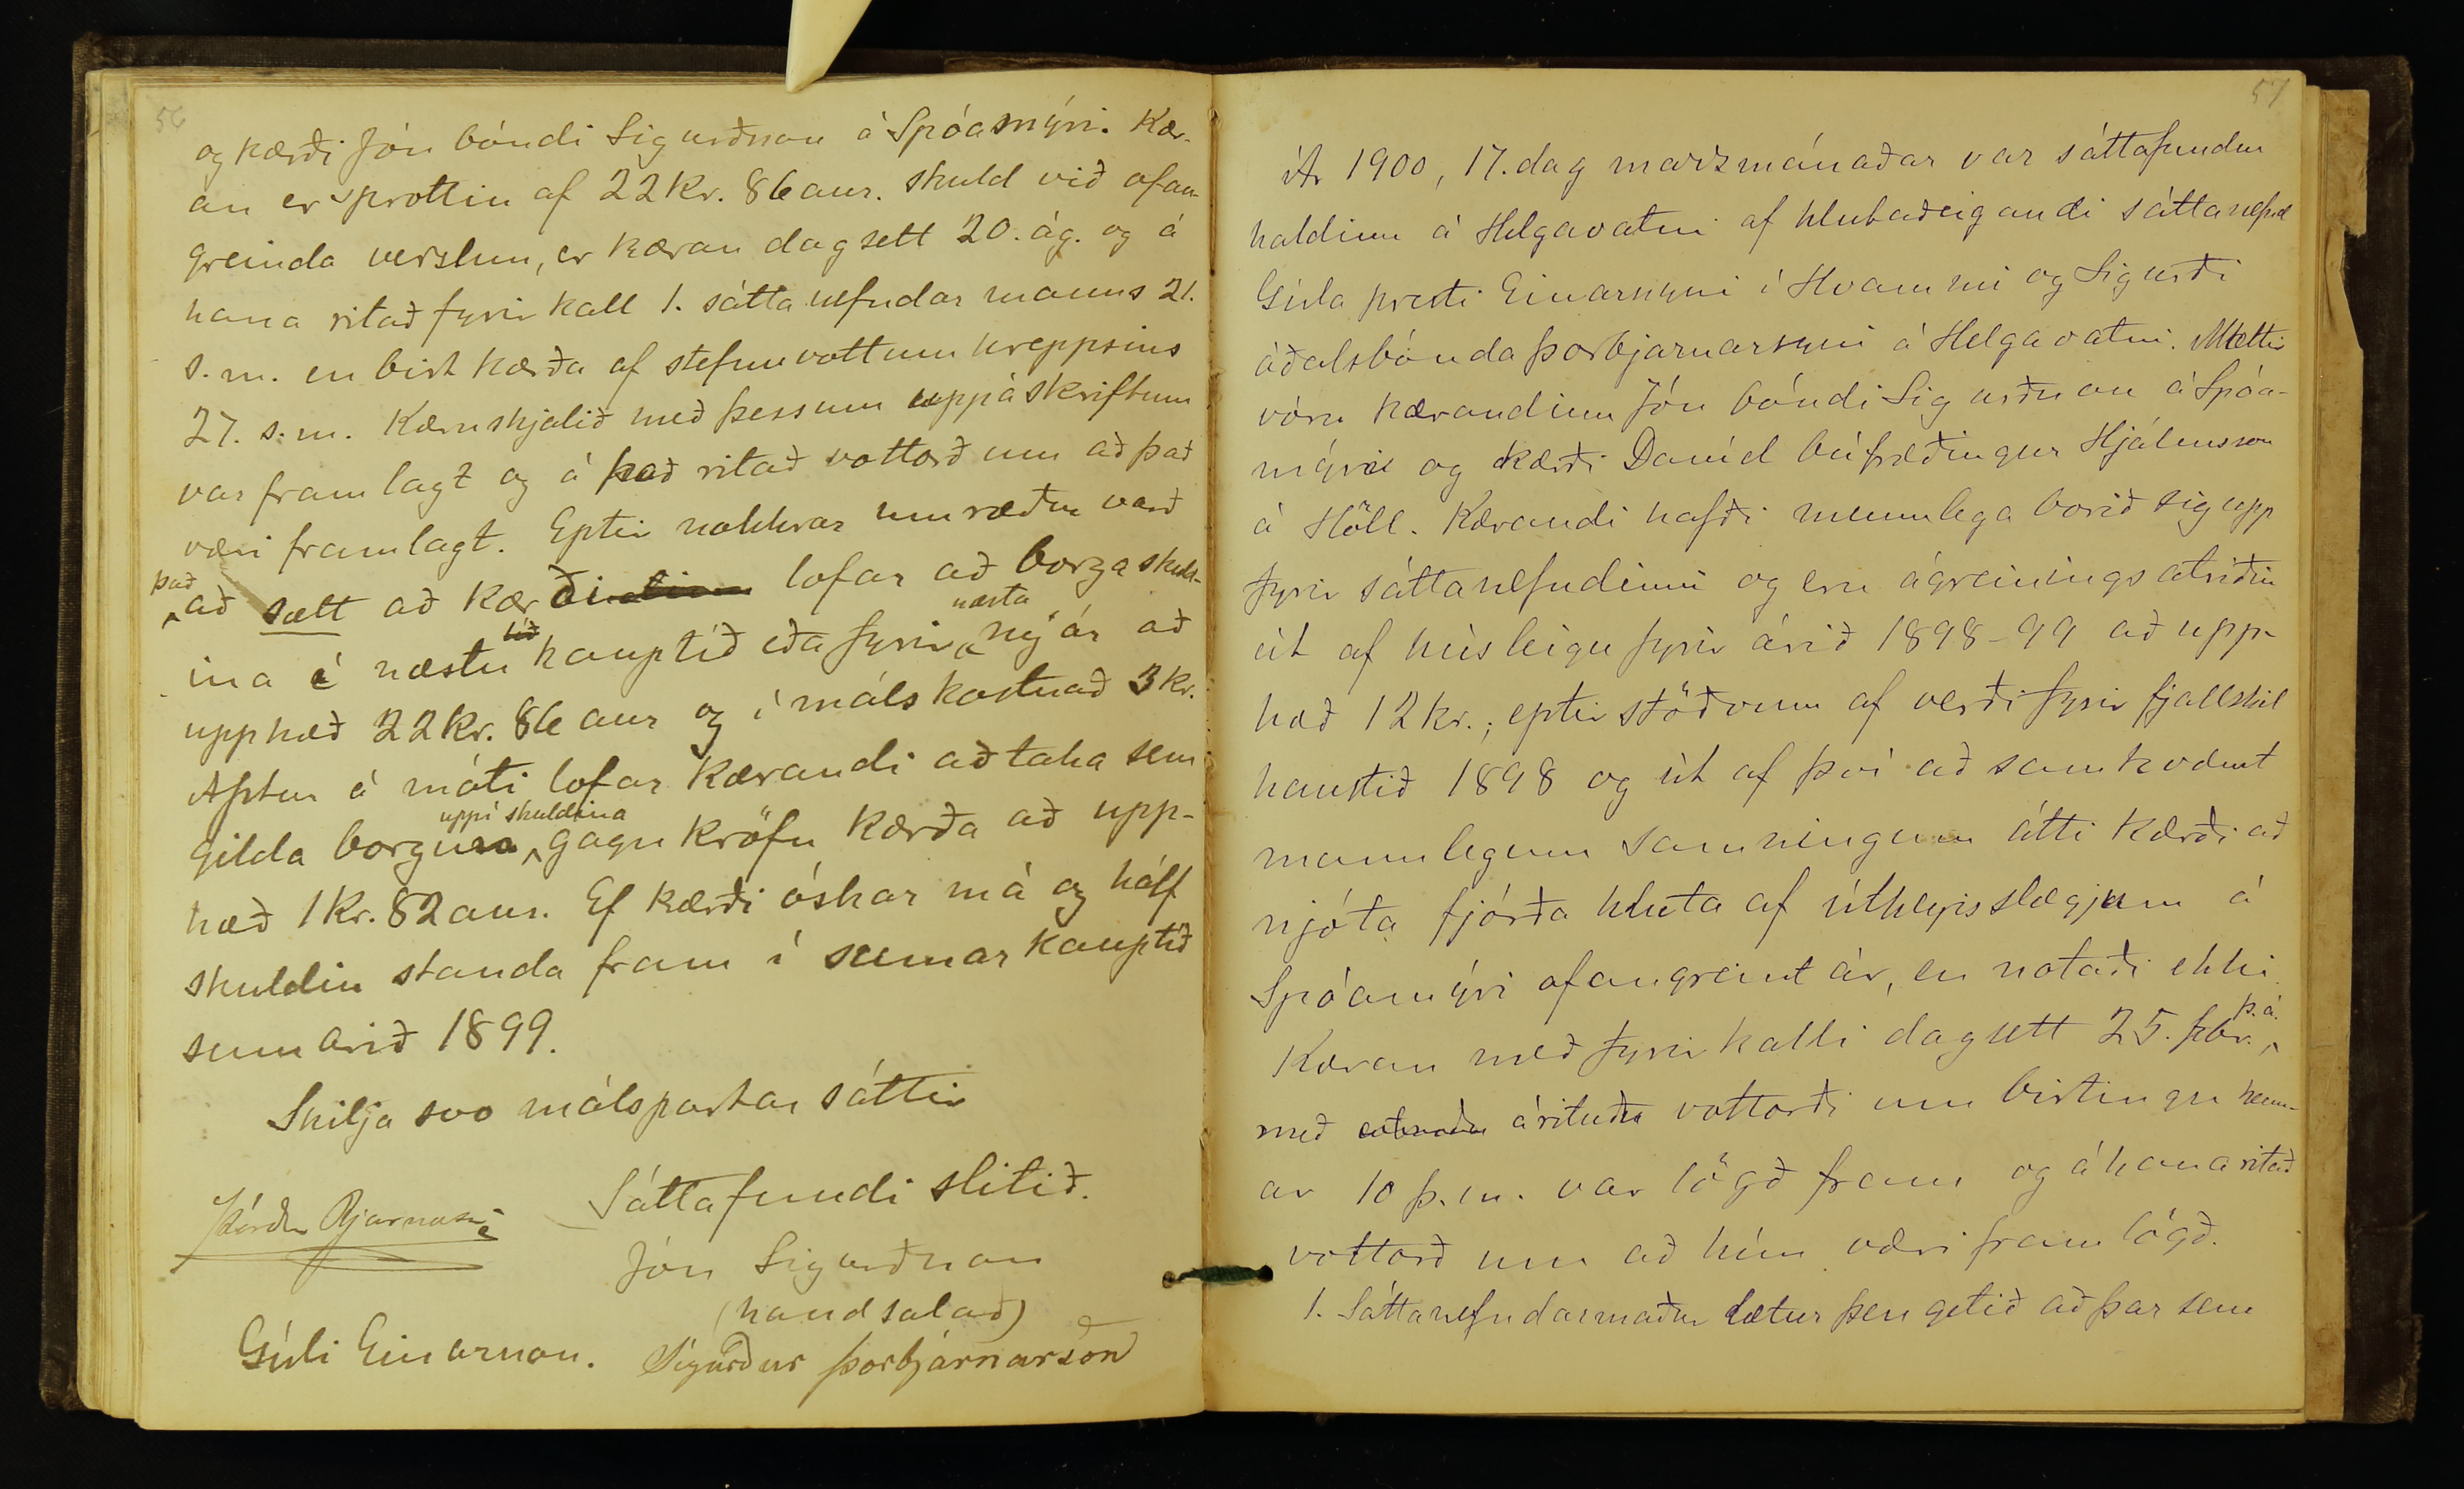 56
og kærði Jón bóndi Sigurðsson á Spóamýri. Kær-
an er sprottin af 22 kr. 86 aur. skuld við ofan-
greinda verslun, er kæran dagsett 20. ág. og á
hana ritað fyrirkall 1. sáttanefndarmanns 21.
s.m. en birt kærða af stefnuvottum hreppsins
27. s.m. Kæruskjalið með þessum uppáskriftum
var framlagt og á það ritað vottorð um að það
væri framlagt. Eptir nokkrar umræður varð
það
að sætt að kærði lofar að borga skuld-
næsta
ina í næstu kauptíð eða fyrir nýár að
upphæð 22 kr. 86 aur og í málskostnað 3 kr.
Aptur á móti lofar kærandi að taka sem
uppí skuldina
gilda borgun gagnkröfu kærða að upp-
hæð 1 kr. 82 aur. Ef kærði óskar má og hálf
skuldin standa fram í sumarkauptíð
sumarið 1899.
Skilja svo málspartar sáttir
Sáttafundi slitið.
Þórður Bjarnason
Jón Sigurðsson
(handsalað)
Gísli Einarsson. Sigurður Þorbjarnarson
57
Ár 1900, 17. dag marzmánaðar var sáttafundur
haldinn á Helgavatni af hlutaðeigandi sáttanefnd
Gísla presti Einarssyni í Hvammi og Sigurði
óðalsbónda Þorbjarnarsyni á Helgavatni. Mættir
vóru kærandinn Jón bóndi Sigurðsson á Spóa-
mýri og kærði Daníel búfræðingur Hjálmsson
á Höll. Kærandi hafði munnlega borið sig upp
fyrir sáttanefndinni og eru ágreiningsatriðin
út af húsleigu fyrir árið 1898-99 að upp-
hæð 12 kr.; eptirstöðvum af verði fyrir fjallskil
haustið 1898 og út af því að samkvæmt
munnlegum samningum átti kærði að
njóta fjórða hluta af útheyisslægjum á
Spóamýri ofangreint ár, en notaði ekki.
þ.á.
Kæran með fyrirkalli dagsett 25. febr.
með árituðu vottorði um birtingu henn-
ar 10 þ.m. var lögð fram og á hana ritað
vottorð um að hún væri framlögð.
1. Sáttanefndarmaður lætur þess getið að þar sem